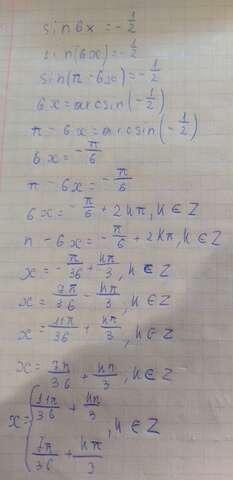 sin6x = -1/2
sin(6x) = -1/2
sin(π - 6x) = -1/2
6x = arcsin(-1/2)
π - 6x = arcsin(-1/2)
6x = -π/6
π - 6x = -π/6
6x = -π/6 + 2kπ, k ∈ Z
π - 6x = -π/6 + 2kπ, k ∈ Z
x = -π/36 + kπ/3, k ∈ Z
x = 7π/36 - kπ/3, k ∈ Z
x = 11π/36 + kπ/3, k ∈ Z
x = 7π/36 + kπ/3, k ∈ Z
x = { 11π/36 + kπ/3
7π/36 + kπ/3 , k ∈ Z